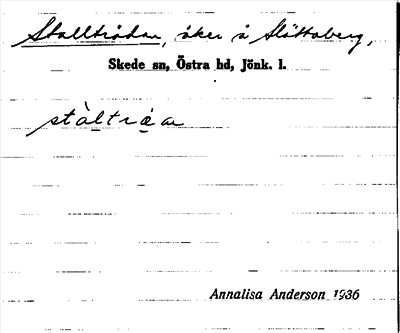 Stallträdan, åker å Slättaberg,
Skede sn, Östra hd, Jönk. l.
stàltrá̤a
Annalisa Anderson 1936